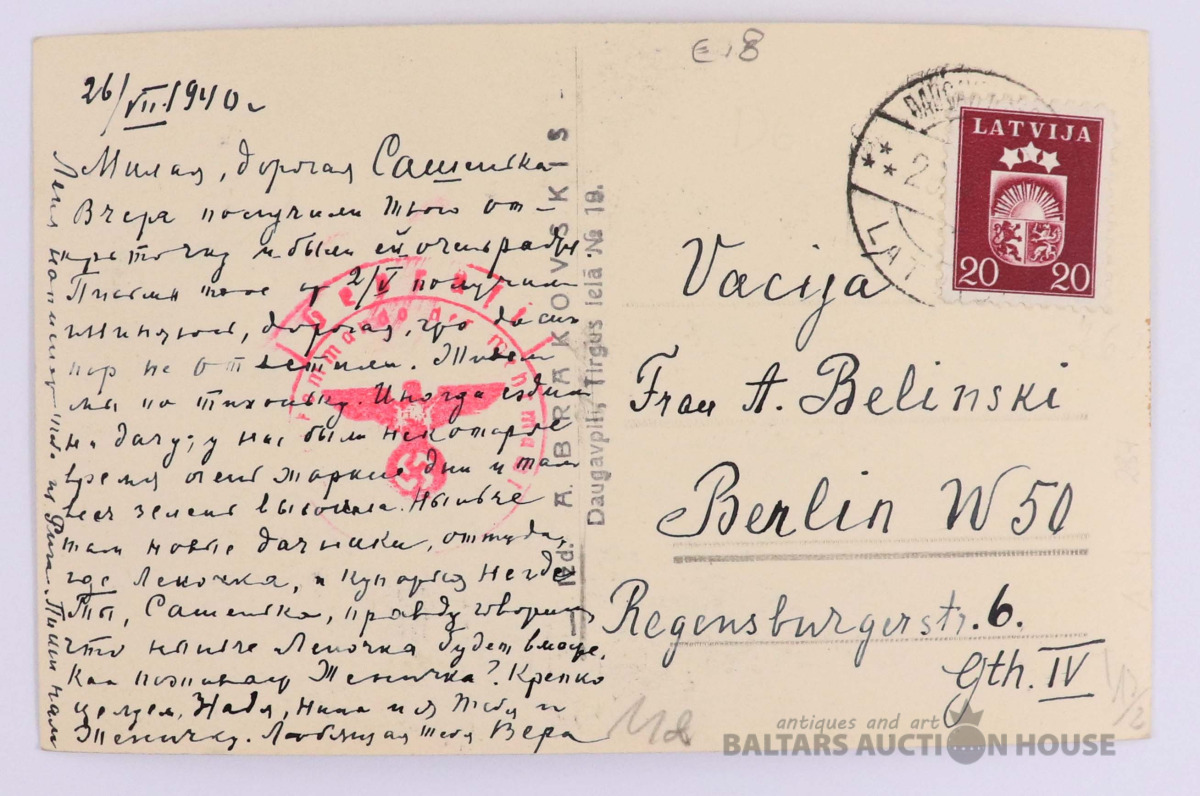 26/VII 1940 г
Милая, дорогая Сашенька
Вчера получили твою от-
крыточку и были ей очень рады
Письмо твое от 2/V получили
дорогая, что до сих
пор не ответили. Живем
мы по тихоньку. Иногда ездим
на дачу; у нас были некоторое
время очень жаркие дни и там
вся зелень высохла. Нынче
там новые дачники, оттуда,
где Леночка, и купаться негде
Ты, Сашенька, правду говоришь
что нынче Леночка будет
Как поживает Женичка? Крепко
целуем, Надя, Нина и я тебя и
Женичку. Любящая тебя Вера
Леля напишет тебе из Риги. Пиши нам
Geprüft
Kommando der Wehrmacht
Izd. A. BRAKOVSKIS
Daugavpilī, Tirgus ielā № 18.
E 18
LATVIJA
20 20
DAUGAV
2
LAT
Vacija
Frau A. Belinski
Berlin W 50
Regensburgerstr. 6.
Gth. IV
antiques and art
BALTARS AUCTION HOUSE